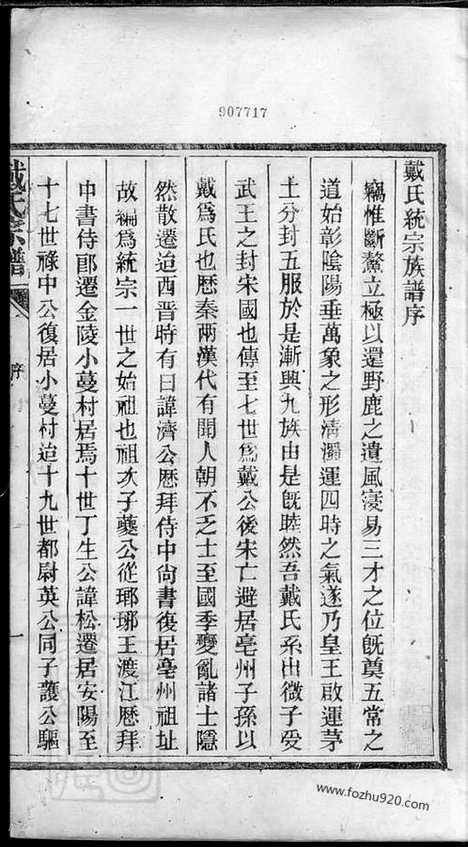 907717
戴氏統宗族譜序
竊惟斷鰲立極以還野鹿之遺風寖易三才之位既奠五常之
道始彰陰陽垂萬象之形清濁運四時之氣遂乃皇王啟運茅
土分封五服於是漸興九族由是既睦然吾戴氏系由微子受
武王之封宋國也傳至七世為戴公後宋亡避居亳州子孫以
戴為氏也歷秦兩漢代有聞人朝不乏士至國季變亂諸士隱
然散遷迨西晋時有曰諱濟公歷拜侍中尙書復居亳州祖址
故編為統宗一世之始祖也祖次子夔公從瑯琊王渡江歷拜
中書侍郎遷金陵小蔓村居焉十世丁生公諱松遷居安陽至
十七世祿中公復居小蔓村迨十九世都尉英公同子護公驅
戴氏宗譜
序
一
www.fozhu920.com